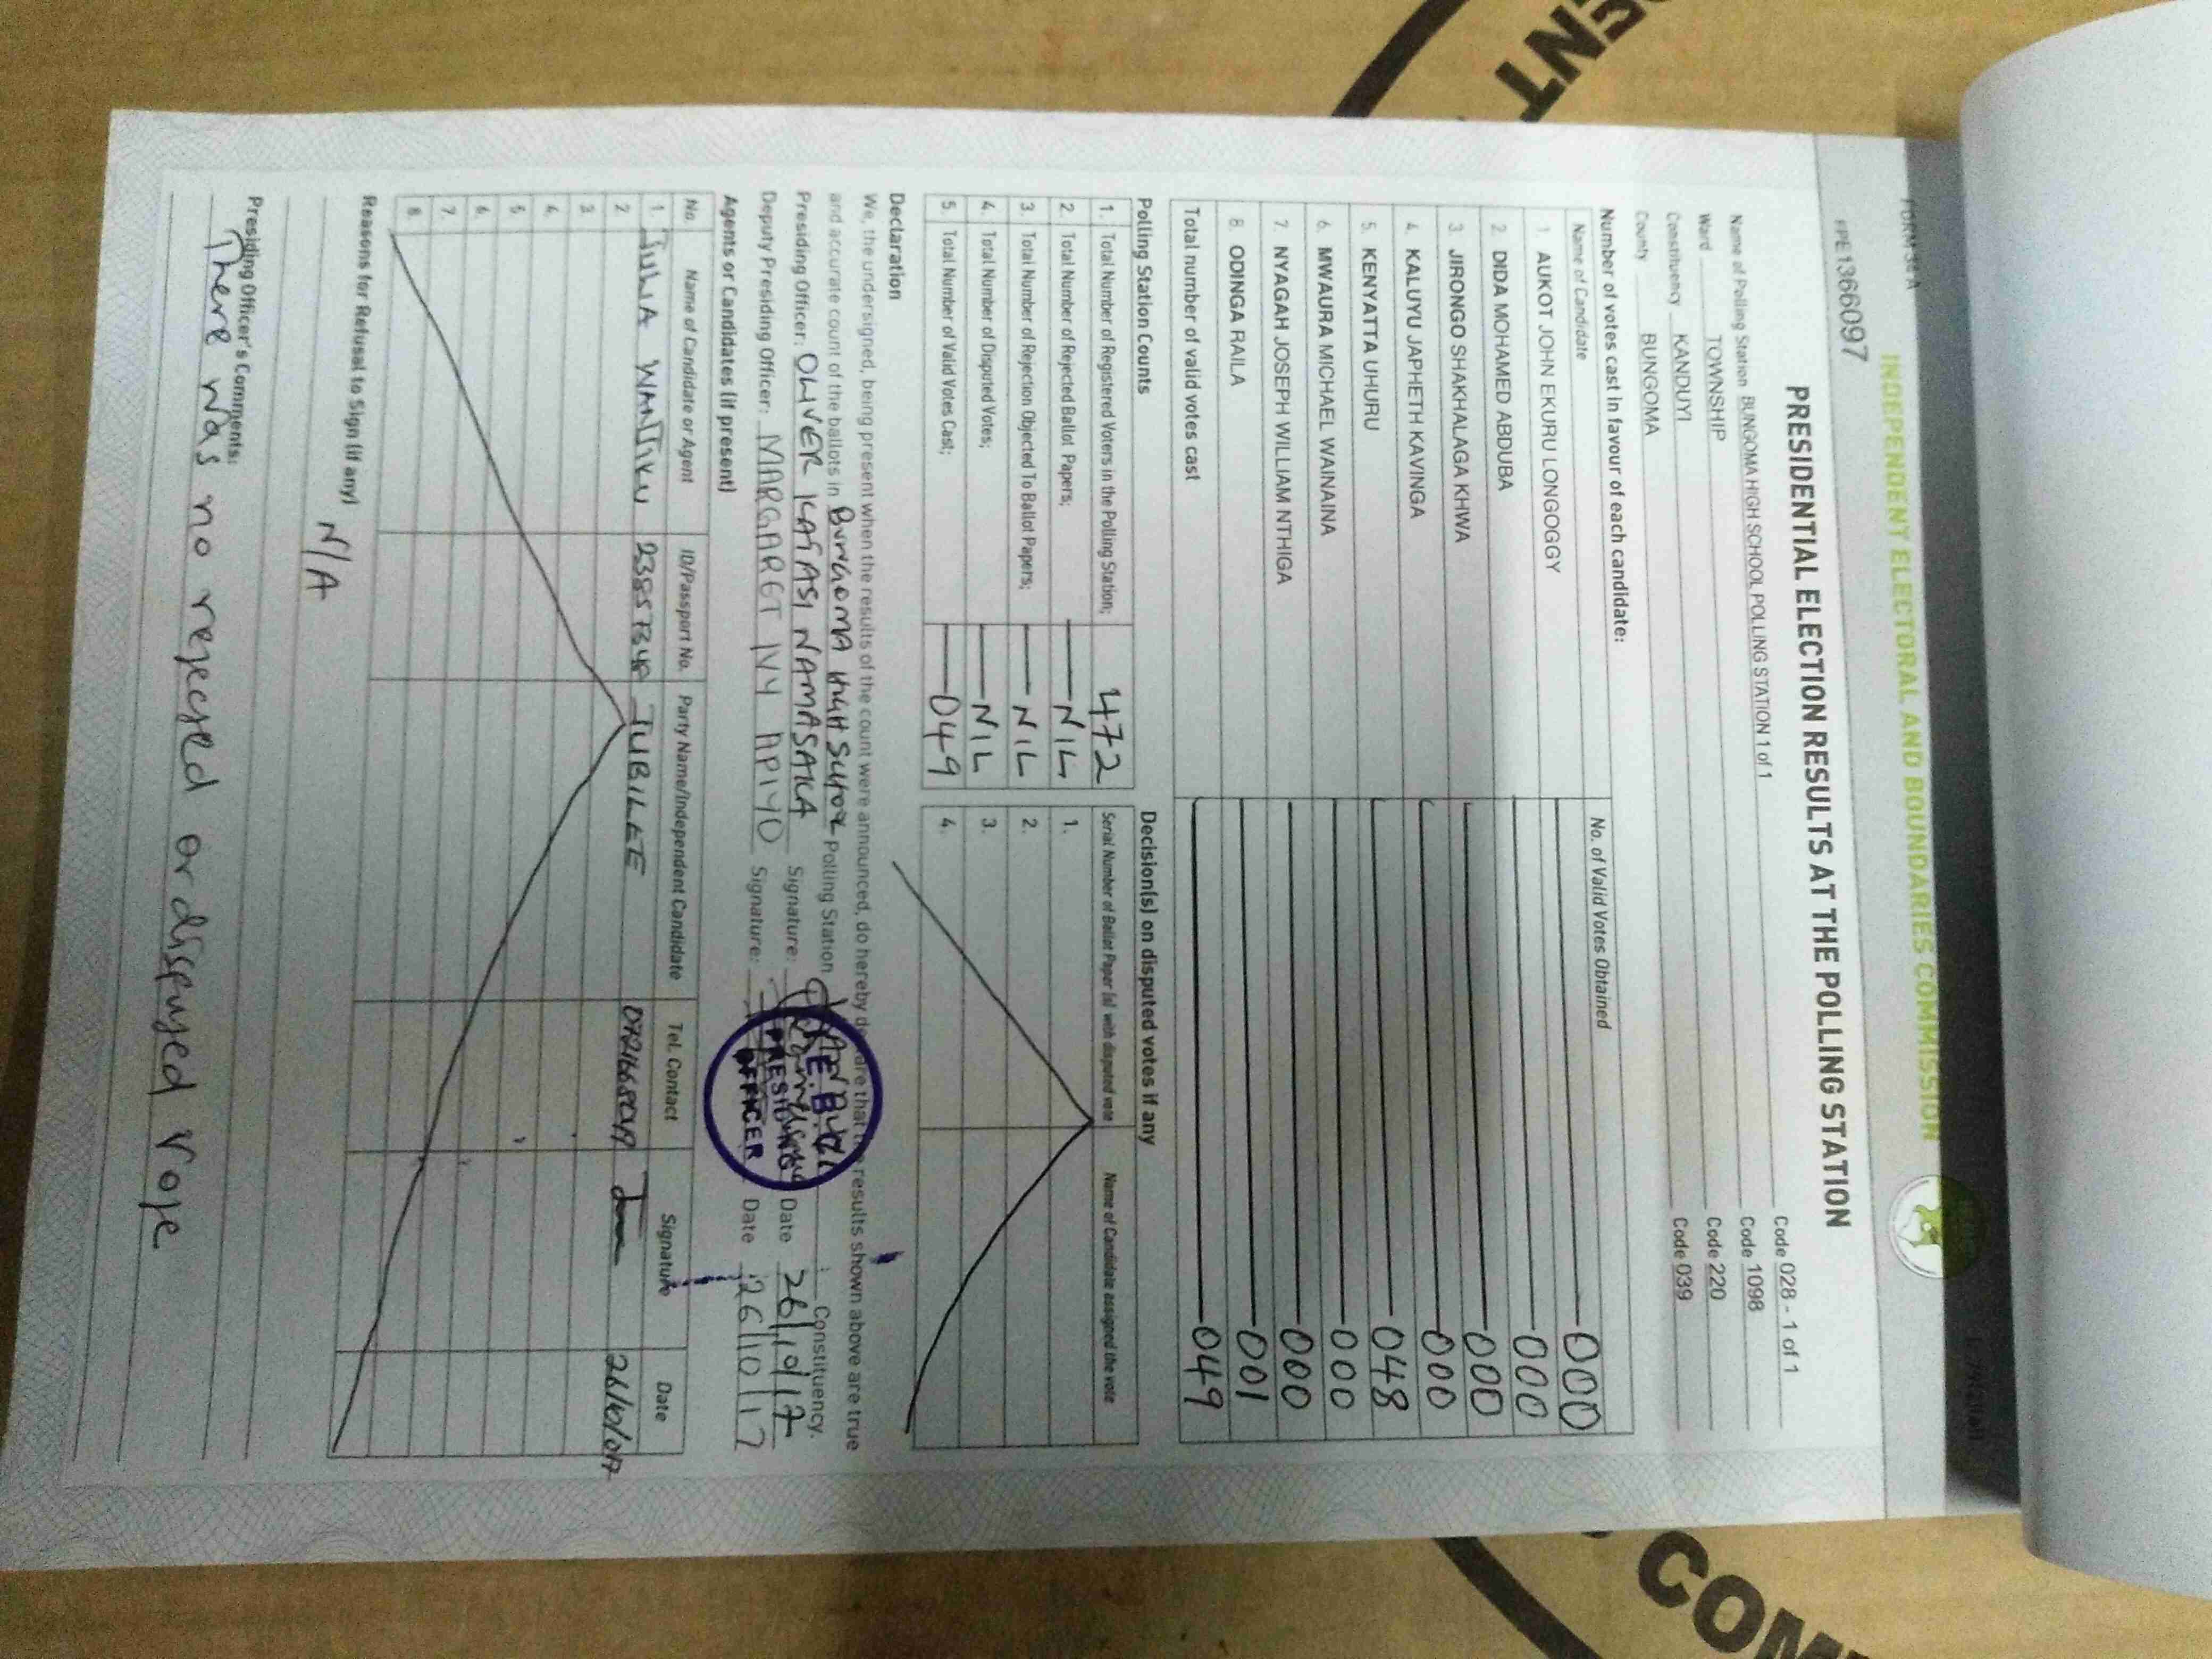 FORM 34A
INDEPENDENT ELECTORAL AND BOUNDARIES COMMISSION
PE1366097
PRESIDENTIAL ELECTION RESULTS AT THE POLLING STATION
Name of Polling Station BUNGOMA HIGH SCHOOL POLLING STATION 1 of 1 Code 028 - 1 of 1
Code 1098
Ward TOWNSHIP Code 220
Constituency KANDUYI Code 039
County BUNGOMA
Number of votes cast in favour of each candidate:
Name of Candidate No. of Valid Votes Obtained
1 AUKOT JOHN EKURU LONGOGGY 000
2 DIDA MOHAMED ABDUBA 000
3. JIRONGO SHAKHALAGA KHWA 000
4. KALUYU JAPHETH KAVINGA 000
5. KENYATTA UHURU 048
6. MWAURA MICHAEL WAINAINA 000
7. NYAGAH JOSEPH WILLIAM NTHIGA 000
8 ODINGA RAILA 001
Total number of valid votes cast 049
Polling Station Counts
1. Total Number of Registered Voters in the Polling Station; 472
2. Total Number of Rejected Ballot Papers; NIL
3. Total Number of Rejection Objected To Ballot Papers; NIL
4. Total Number of Disputed Votes; NIL
5. Total Number of Valid Votes Cast; 049
Decision(s) on disputed votes if any
Serial Number of Ballot Paper (s) with disputed vote Name of Candidate assigned the vote
1.
2.
3.
4.
Declaration
We, the undersigned, being present when the results of the count were announced, do hereby declare that the results shown above are true
and accurate count of the ballots in BUNGOMA HIGH SCHOOL Polling Station KANDUYI Constituency.
Presiding Officer: OLIVER KATASI NAMASAKA Signature: Date 26/10/17
Deputy Presiding Officer: MARGARET IVY APIYO Signature: Date 26/10/17
PRESIDING
OFFICER
Agents or Candidates (if present)
No. Name of Candidate or Agent ID/Passport No. Party Name/Independent Candidate Tel. Contact Signature Date
1. JULIA WANJIKU JUBILEE
2
3.
4.
5
6.
7.
8.
Reasons for Refusal to Sign (if any)
N/A
Presiding Officer's Comments:
There was no rejected or dispuyed voye